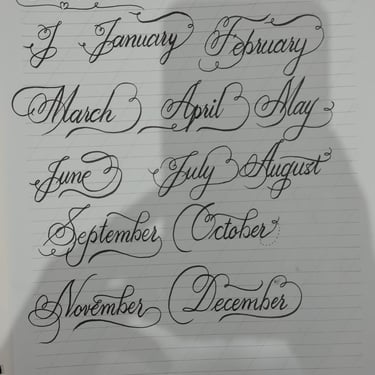 J January February
March April May
June July August
September October
November December